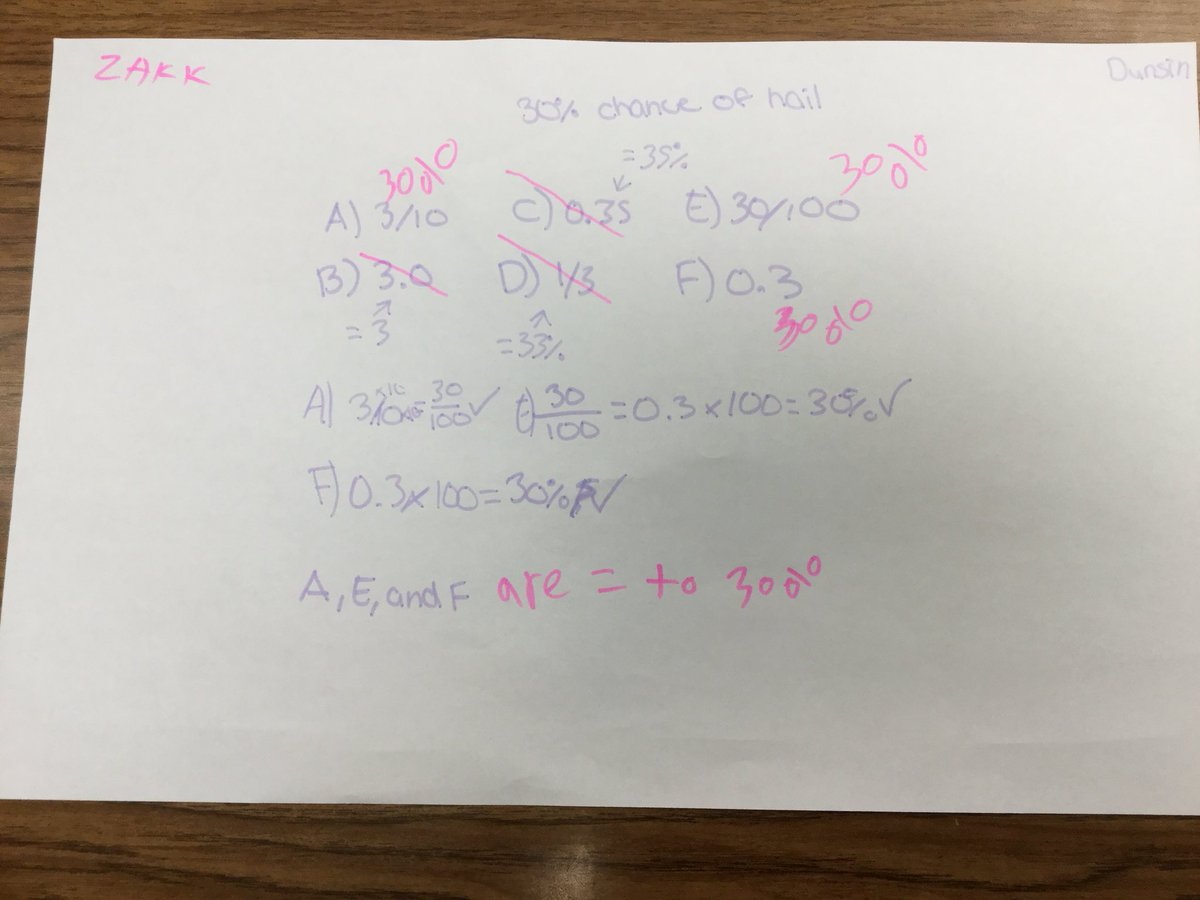 ZAKK
Dunsin
30% chance of hail
= 35%
30% 30%
A) 3/10 C) 0.35 E) 30/100
B) 3.0 D) 1/3 F) 0.3
= 3 = 33% 30%
A) 3×10/10×10=30/100 ✓ E) 30/100 = 0.3 × 100 = 30% ✓
F) 0.3 × 100 = 30% ✓
A, E, and F are = to 30%